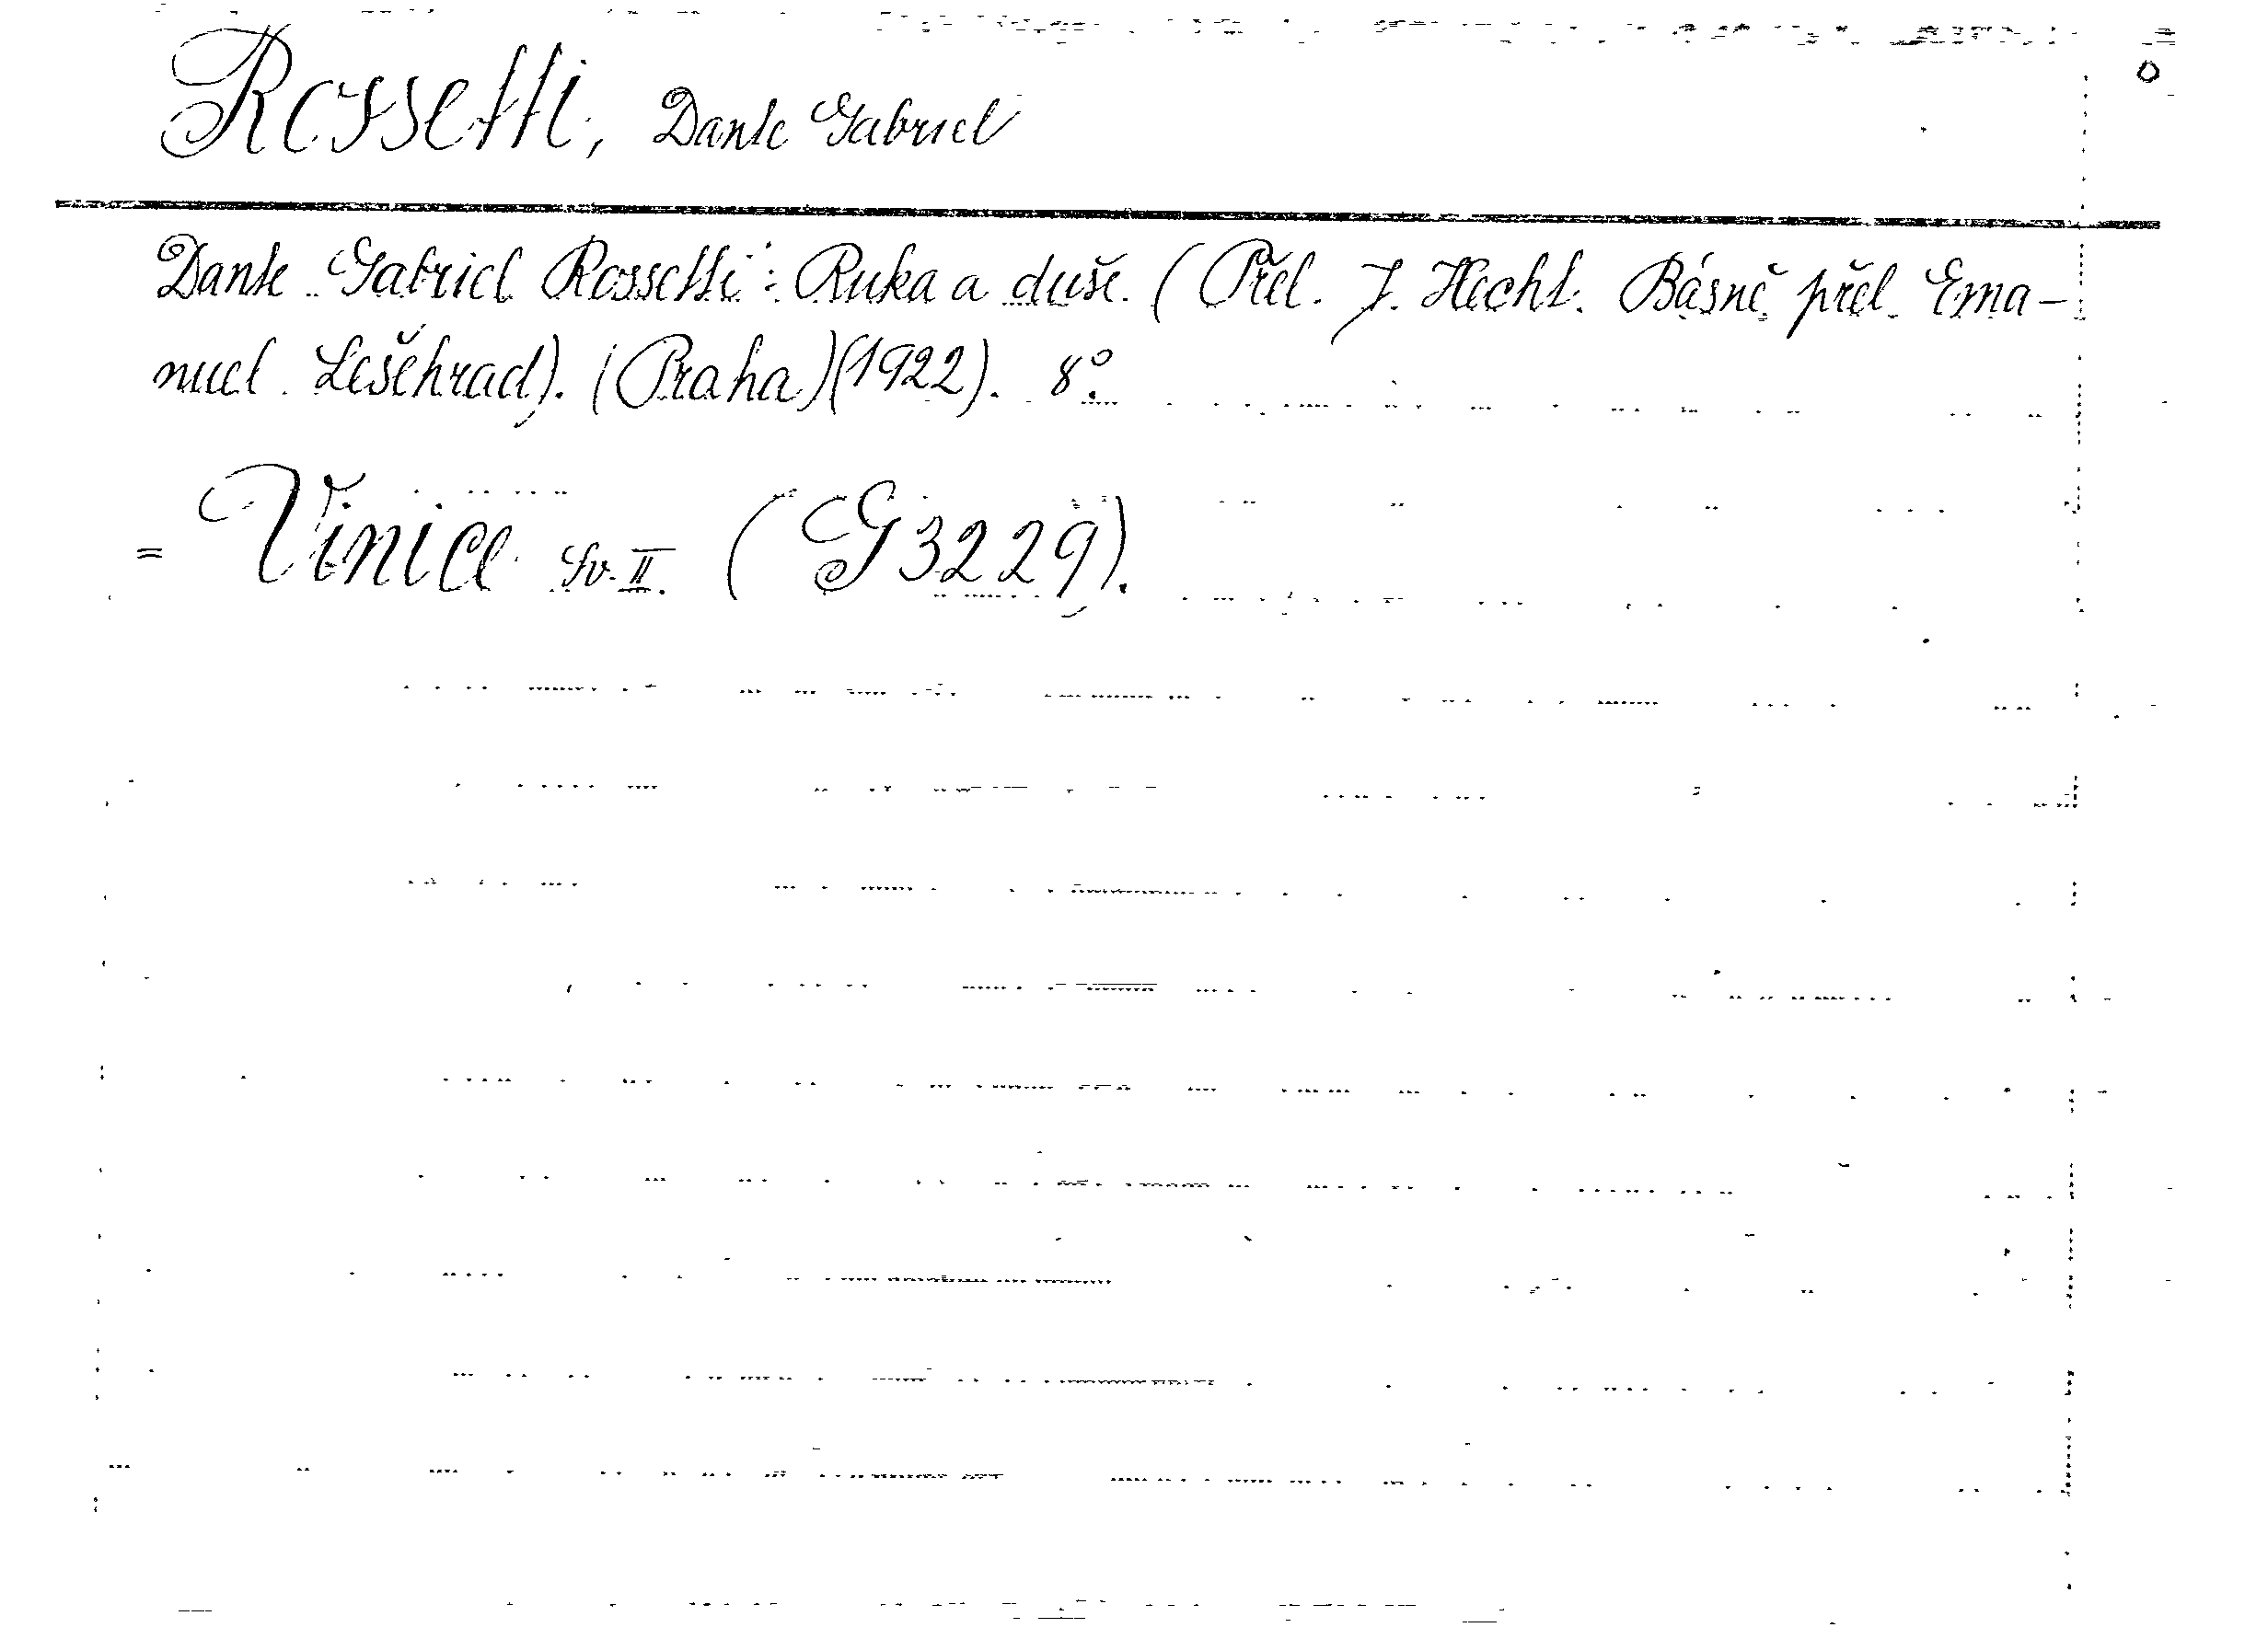 Rossetti, Dante Gabriel
Dante Gabriel Rossetti: Ruka a duše. (Přel. J. Hecht. Básně přel. Ema-
nuel Lešehrad). (Praha)(1922). 8°.
= Vinice Sv. II. (G 3229).